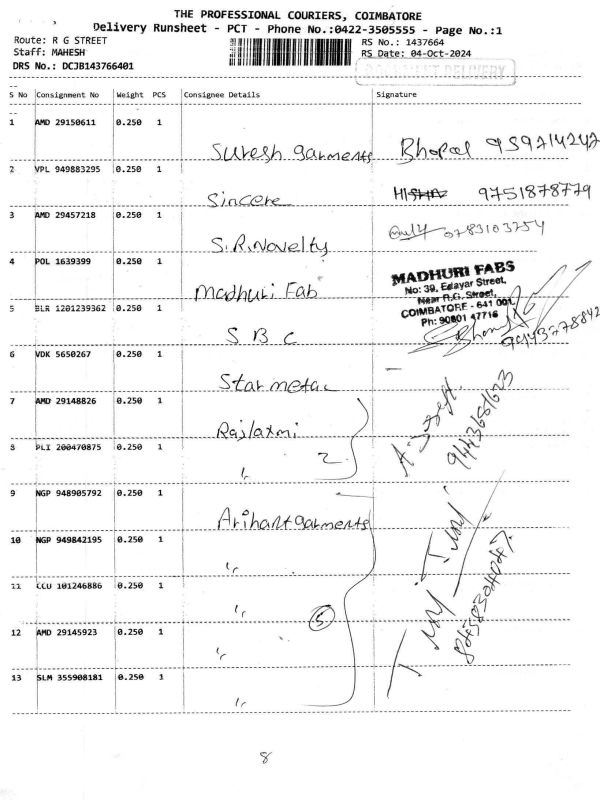 THE PROFESSIONAL COURIERS, COIMBATORE
Delivery Runsheet - PCT - Phone No.:0422-3505555 - Page No.:1
Route: R G STREET
RS No.: 1437664
Staff: MAHESH
RS Date: 04-Oct-2024
DRS No.: DCJB143766401
DELIVERY
S No Consignment No Weight PCS Consignee Details Signature
1 AMD 29150611 0.250 1
Suresh garments Bhopal 959714242
2 VPL 949883295 0.250 1
Sincere 9751878779
3 AMD 29457218 0.250 1
S.R.Novelty
4 POL 1639399 0.250 1
Madhuri Fab
MADHURI FABS
No: 39, Edayar Street,
Near R.G. Street,
COIMBATORE - 641 001.
Ph: 90801 47716
5 BLR 1201239362 0.250 1
S B C 99943278842
6 VDK 5650267 0.250 1
Star metal -
7 AMD 29148826 0.250 1
Rajlaxmi
A. Joseph
9443681623
8 PLI 200470875 0.250 1
" 2
9 NGP 948905792 0.250 1
Arihant garments
10 NGP 949842195 0.250 1
"
11 CCU 101246886 0.250 1
" 5
12 AMD 29145923 0.250 1
"
13 SLM 355908181 0.250 1
"
8